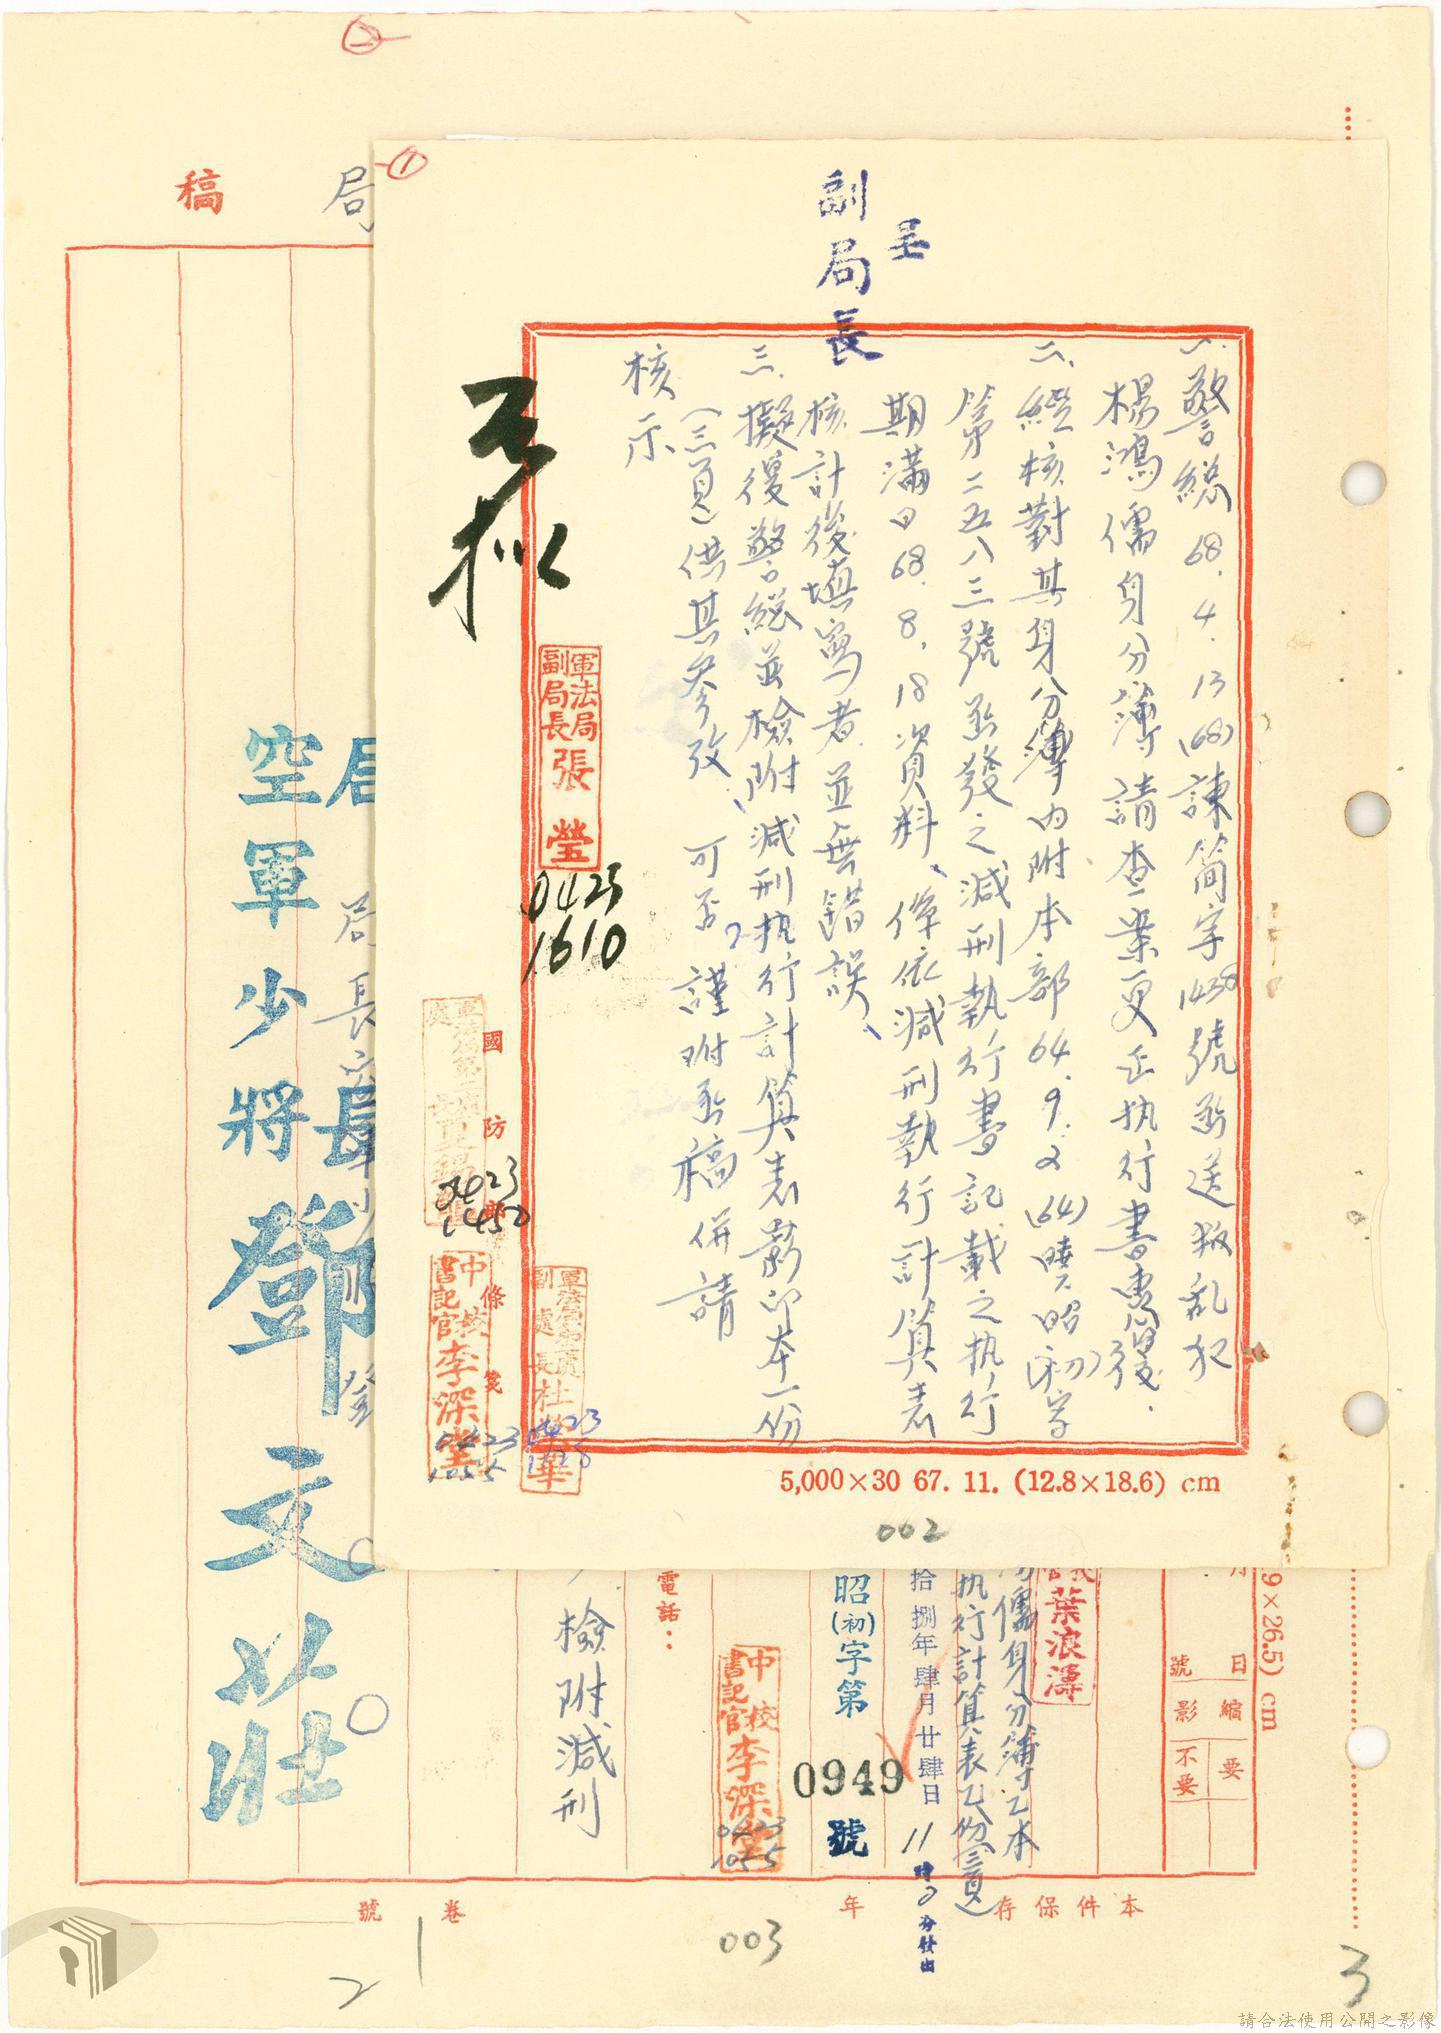 呈
副局長
一、警總68.4.13(68)諫簡字1438號函送叛亂犯
楊鴻儒身分簿請查案更正执行書惠復.
二、經核對其身分簿內附本部64.9.2(64)曉昭(初)字
第二五八三號函發之減刑執行書記載之执行
期滿日68.8.18資料、係依減刑執行計算表
核計後填寫者並無錯誤、
三、擬復警總並檢附減刑执行計算表影印本一份
(三頁)供其參攷、可否?謹附函稿併請
核示
軍法局
副局長
張瑩
0425
1610
國防部
條箋
0423
1450
中校
書記官
李深堂
0423
1055
副處長
杜
華
0423
5,000×30 67. 11. (12.8×18.6) cm
002
稿
局
局長
空軍少將鄧文莊
檢附減刑
電話：
昭(初)字第
0949
號
拾捌年肆月廿肆日
11時0分發出
中校
書記官
李深堂
0423
1055
儒身分簿乙本
执行計算表乙份(三頁)
葉浪濤
日
號
縮
影
要
不要
9×26.5) cm
本件保存
年
卷
號
003
1
2
3
請合法使用公開之影像